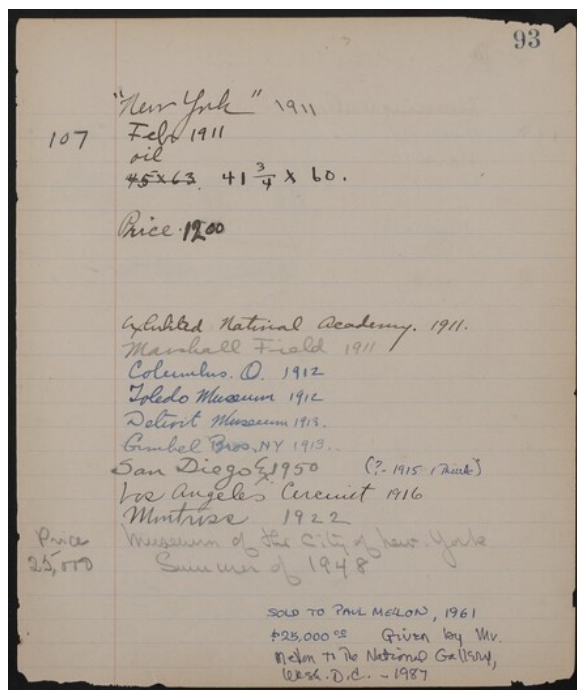 93
"New York" 1911
107 Feb, 1911
oil
45 x 63. 41 3/4 x 60.
Price. 1200
Exhibited National Academy. 1911.
Marshall Field 1911
Columbus. O. 1912
Toledo Museum 1912
Detroit Museum 1913.
Gimbel Bros, NY 1913..
San Diego 1950 (?- 1915 I think)
Los Angeles Circuit 1916
Montross 1922
Price Museum of the City of New York
25,000 Summer of 1948
SOLD TO PAUL MELLON, 1961
$25,000 00 Given by Mr.
Mellon to The National Gallery,
Wash. D.C. - 1987